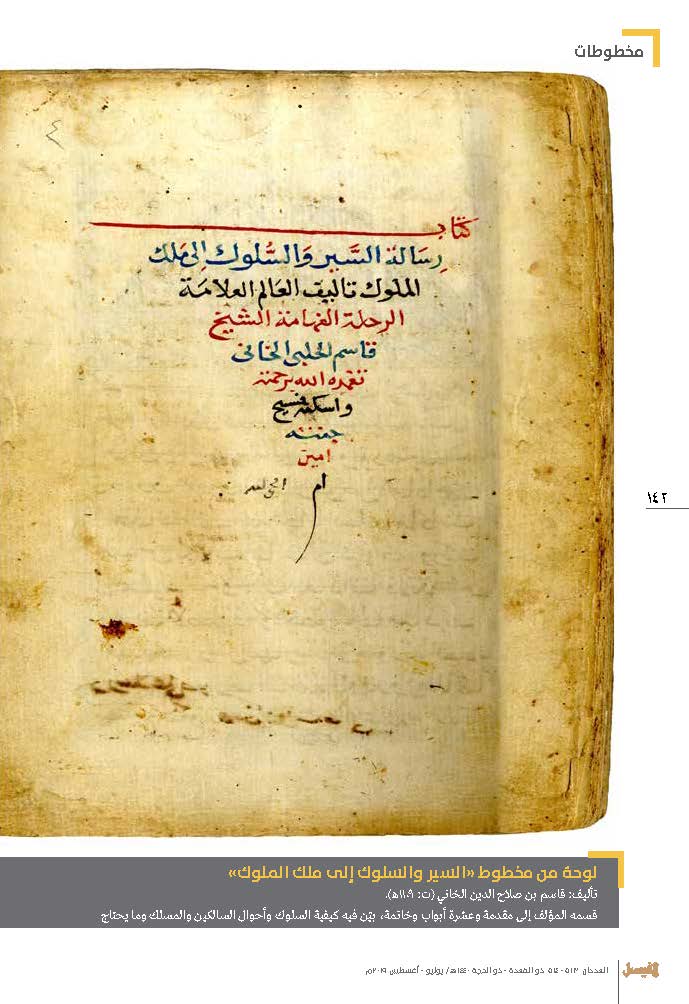 مخطوطات
٤
كتاب
رسالة السَّير والسُّلوك إلى مَلك
الملوك تاليف العالم العلامَة
الرحلة الفهامة الشيخ
قاسم الحلبي الخاني
تغمده الله برحمته
واسكنه فسيح
جنته
امين
ام
١٤٢
لوحة من مخطوط «السير والسلوك إلى ملك الملوك»
تأليف: قاسم بن صلاح الدين الخاني (ت: ١١٠٩هـ).
قسمه المؤلف إلى مقدمة وعشرة أبواب وخاتمة، بيّن فيه كيفية السلوك وأحوال السالكين والمسلك وما يحتاج
الفيصل
العددان ٥١٣ - ٥١٤ ذو القعدة - ذو الحجة ١٤٤٠هـ/ يوليو - أغسطس ٢٠١٩م